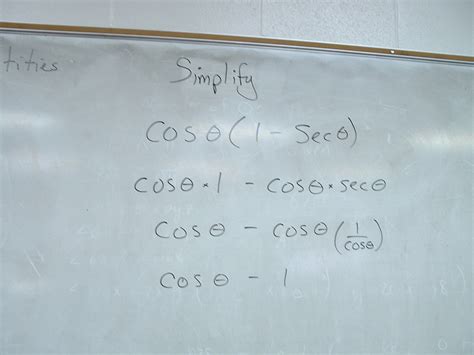 tities
Simplify
cosθ(1 - secθ)
cosθ * 1 - cosθ * secθ
cosθ - cosθ(1/cosθ)
cosθ - 1